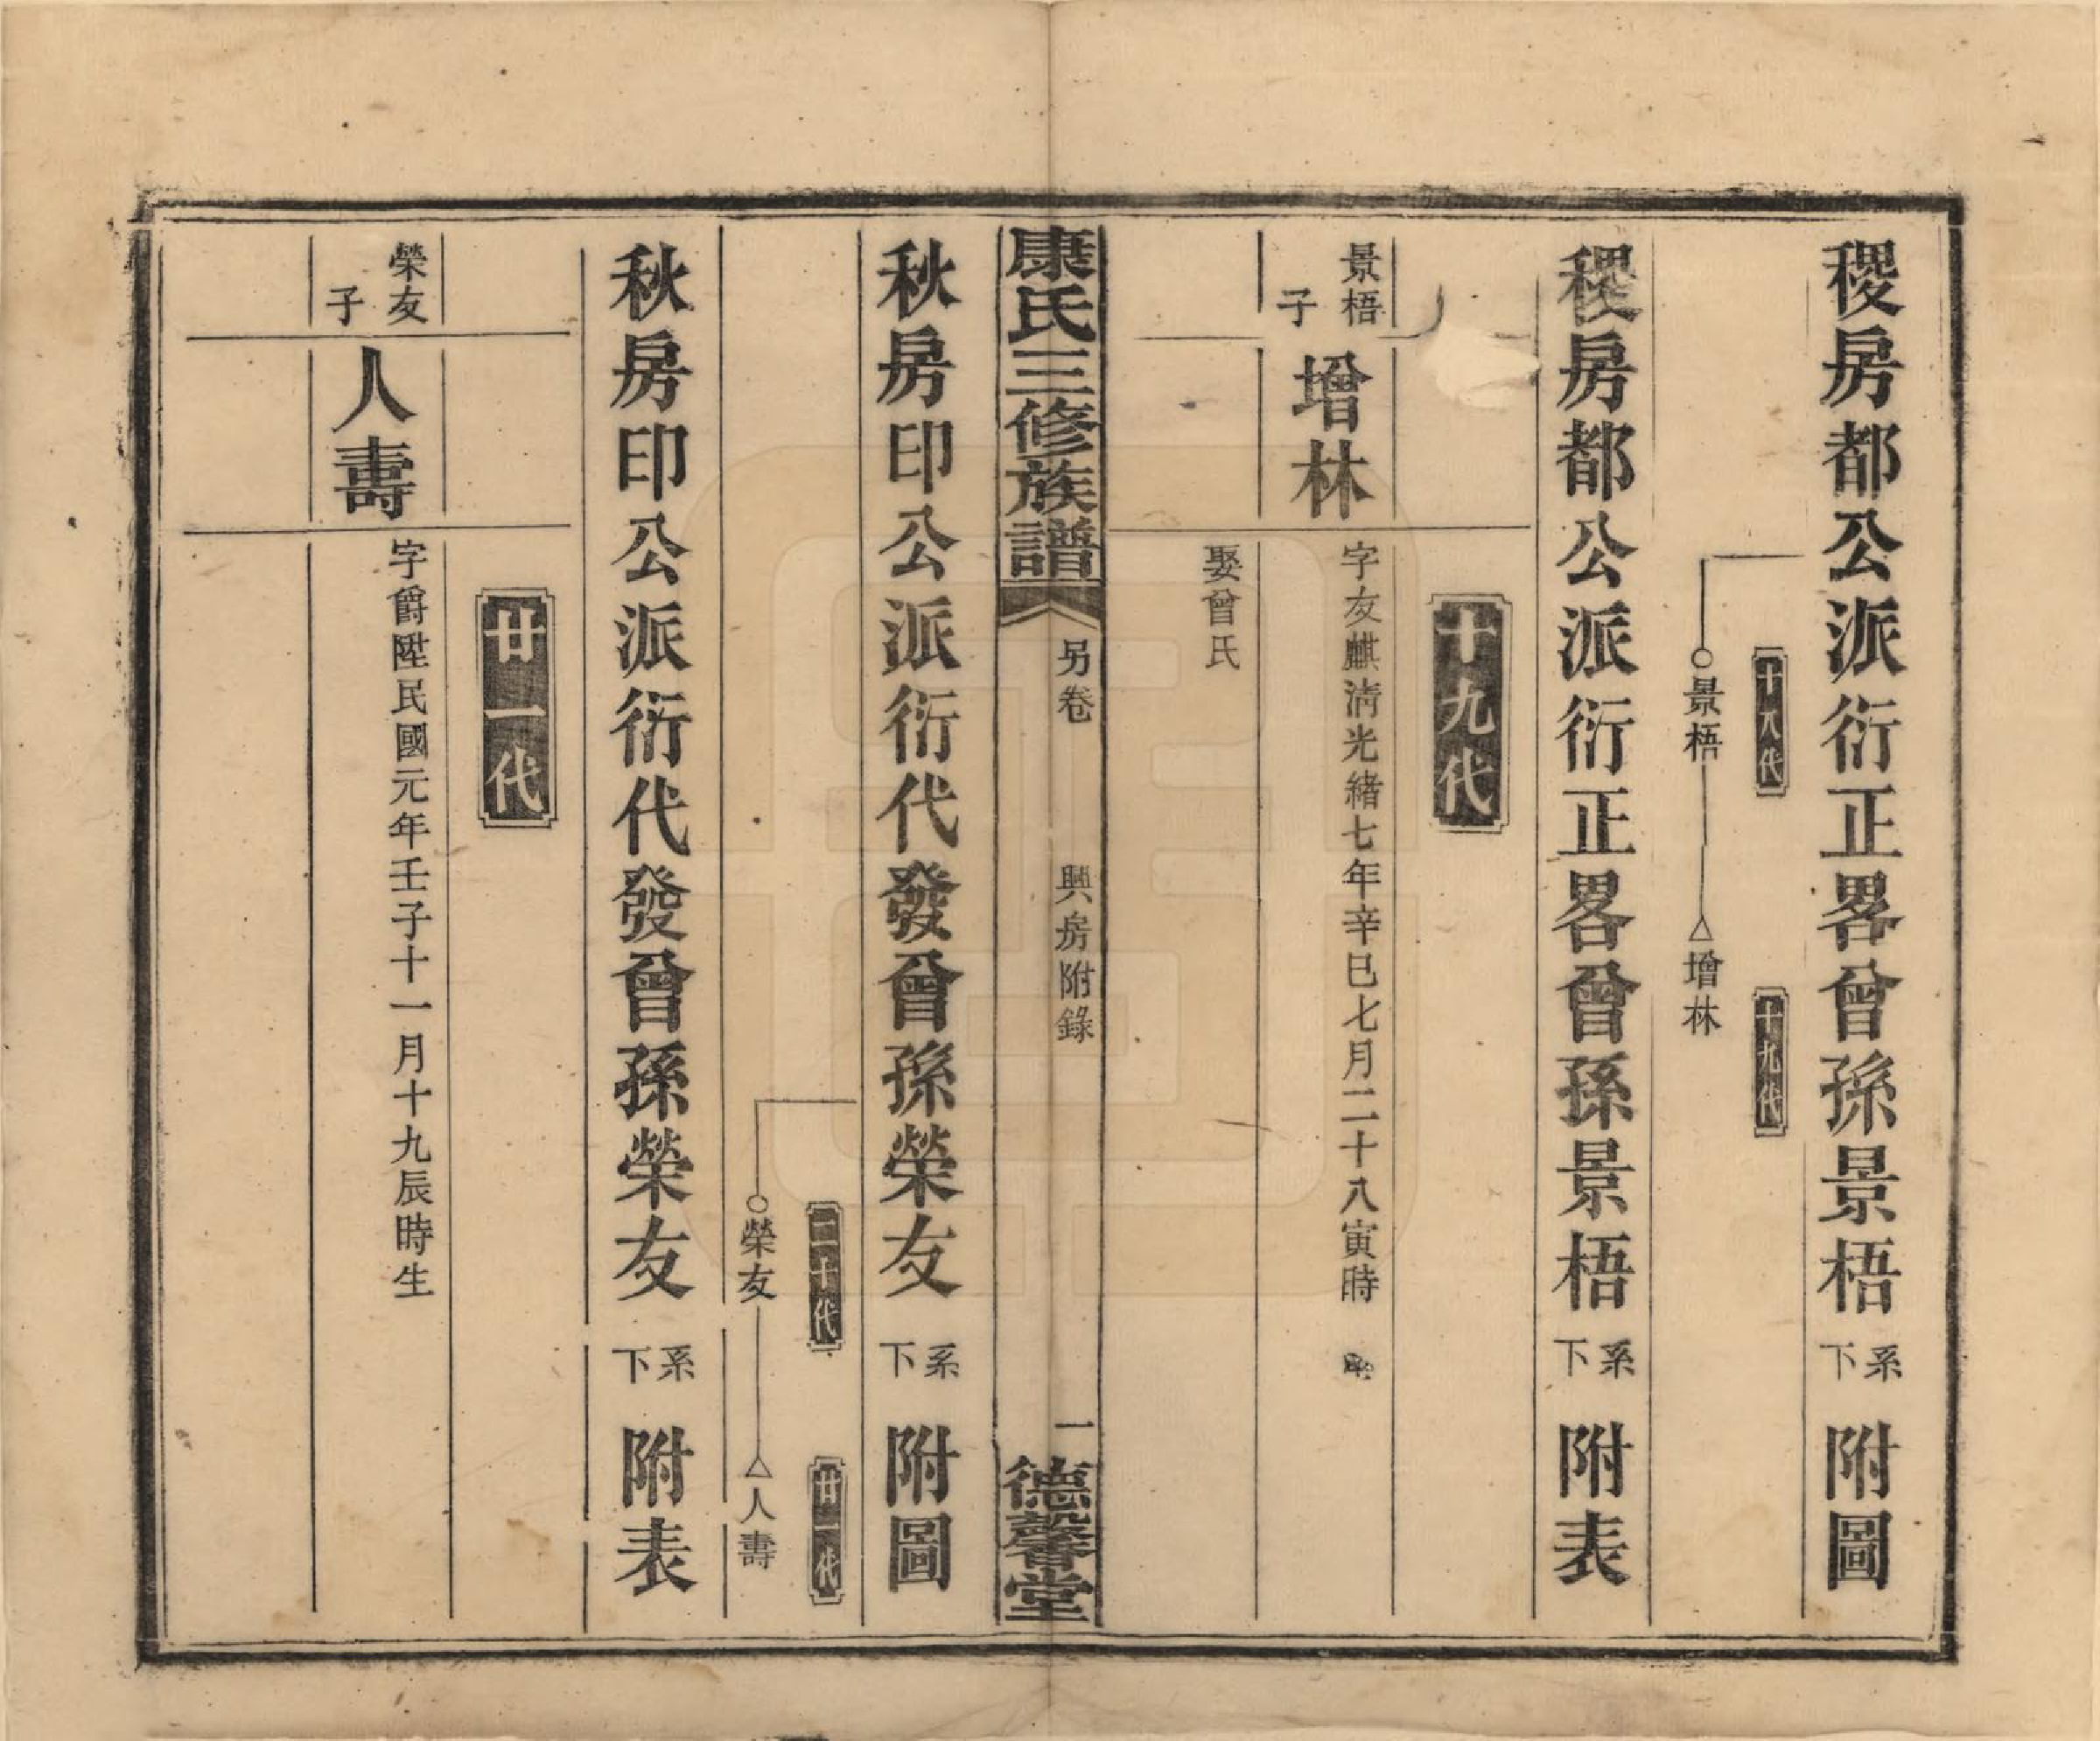 稷房都公派衍正畧曾孫景梧系下附圖
十八代
十九代
景梧
增林
稷房都公派衍正畧曾孫景梧系下附表
十九代
景梧子
增林
字友麒淸光緒七年辛巳七月二十八寅時
娶曾氏
康氏三修族譜
另卷
興房附錄
一
德馨堂
秋房印公派衍代發曾孫榮友系下附圖
二十代
廿一代
榮友
人壽
秋房印公派衍代發曾孫榮友系下附表
廿一代
榮友子
人壽
字爵陞民國元年壬子十一月十九辰時生